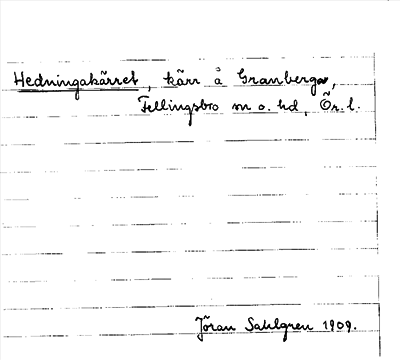 Hedningakärret, kärr å Granberga,
Fellingsbro sn o. hd, Ör. l.
Jöran Sahlgren 1909.